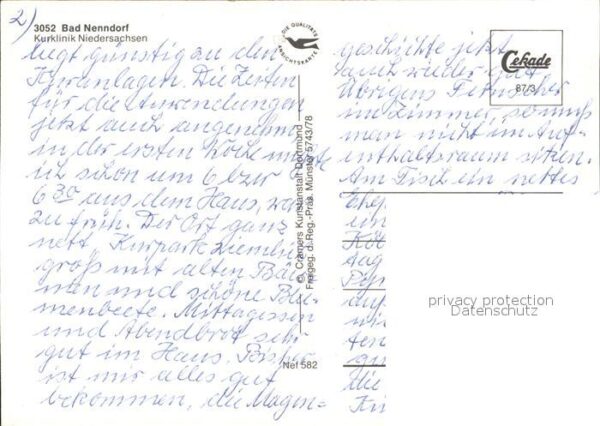 2)
3052 Bad Nenndorf
Kurklinik Niedersachsen
liegt günstig zu den
Kuranlagen. Die Zeiten
für die Anwendungen
jetzt auch angenehm
in der ersten Woche mußte
ich schon um 6 bzw
6 30 aus dem Haus, war
zu früh. Der Ort ganz
nett, Kurpark ziemlich
groß mit alten Bäu-
men und schöne Blu-
menbeete. Mittagessen
und Abendbrot sehr
gut im Haus. Bisher
ist mir alles gut
bekommen, die Magen=
DIE QUALITÄTS
ANSICHTSKARTE
© Cramers Kunstanstalt Dortmund
Freigeg. d. Reg.-Präs. Münster 5743/78
Nef 582
geschichte jetzt
auch wieder gut.
Übrigens Fernseher
im Zimmer, so muß
man nicht im Auf-
enthaltsraum sitzen.
Am Tisch ein nettes
Cekade
87/3
Ehe
in
Köl
Aug
auf
wi
ten
gu
Die
privacy protection
Datenschutz